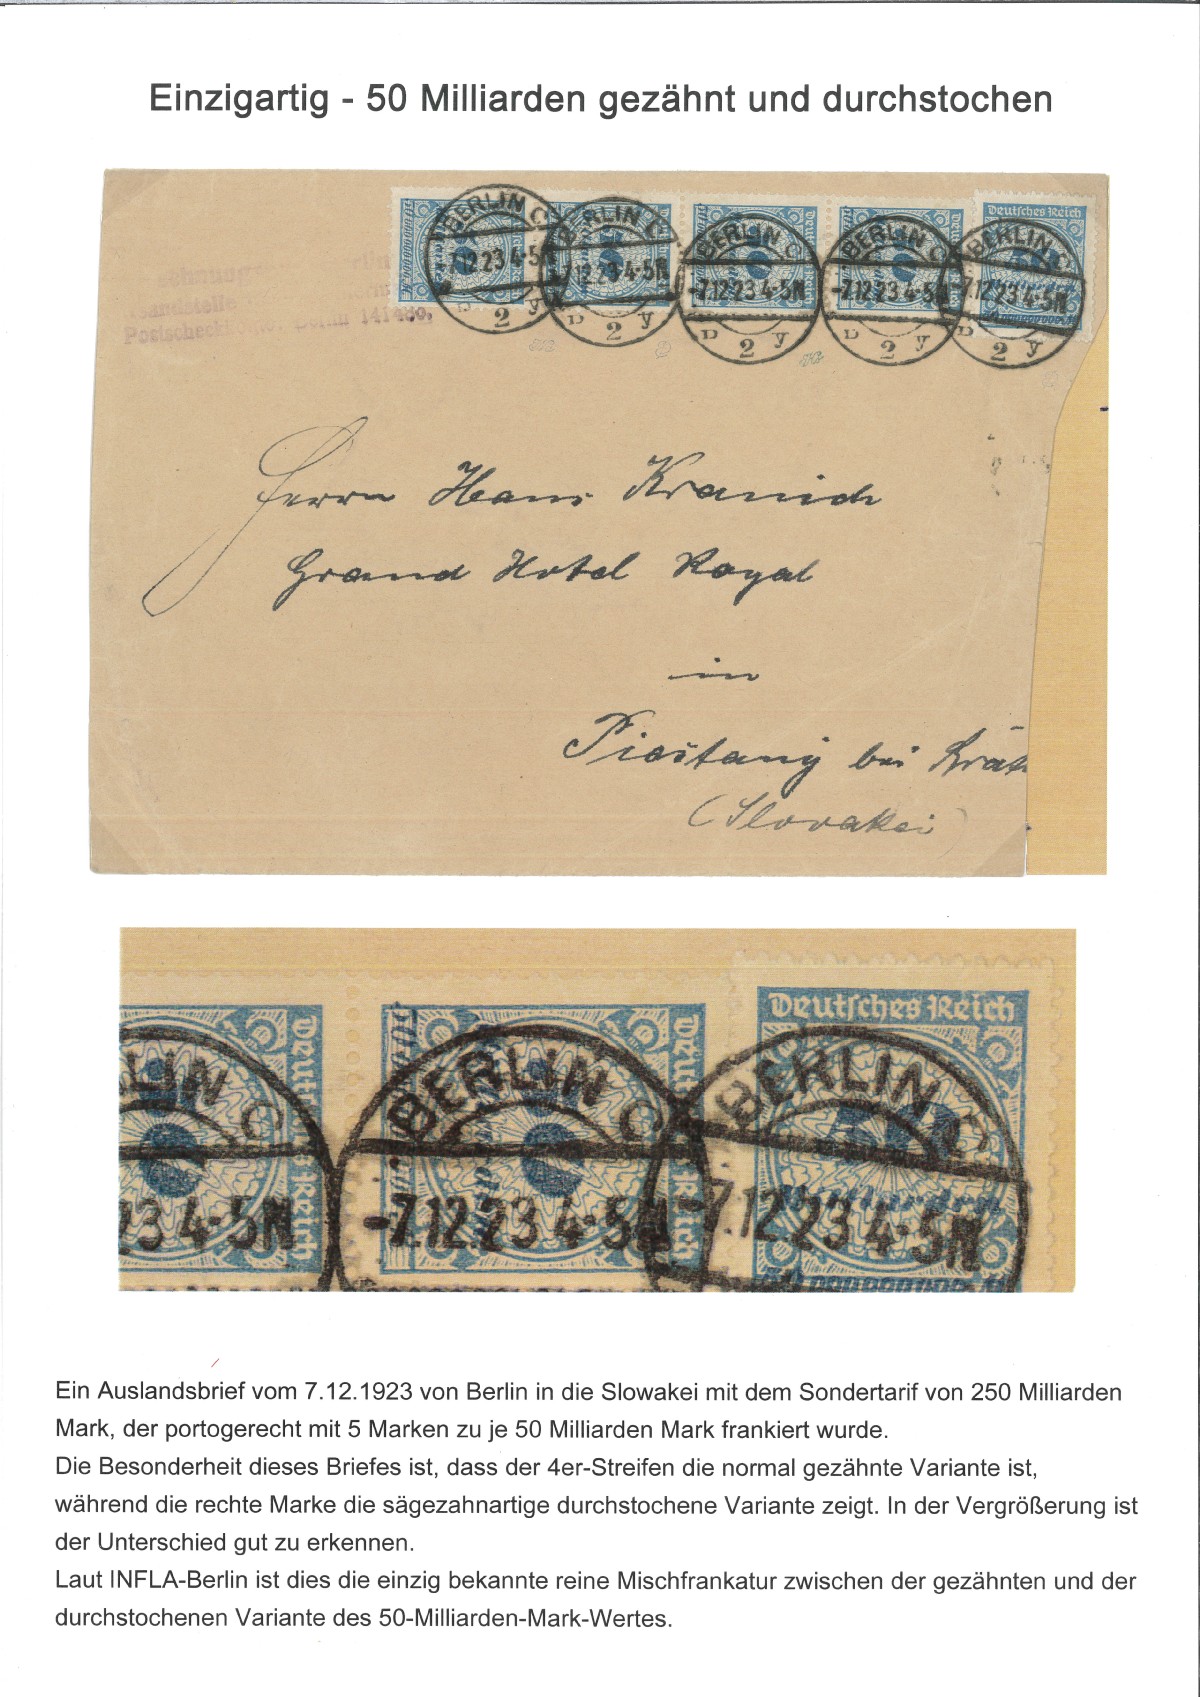 Einzigartig - 50 Milliarden gezähnt und durchstochen
BERLIN C
-7.12.23 4-5N
2 y
BERLIN C
-7.12.23 4-5N
2 y
BERLIN C
-7.12.23 4-5N
2 y
BERLIN C
-7.12.23 4-5N
2 y
Deutsches Reich
BERLIN C
-7.12.23 4-5N
2 y
Berlin 141480.
Herrn Hans Kranich
Grand Hotel Royal
in
Piestany bei
(Slovakei)
LIN C
23 4-5N
Deutsches Reich
BERLIN C
-7.12.23 4-5N
Deutsches Reich
Deutsches Reich
BERLIN C
-7.12.23 4-5N
50
Milliarden
Ein Auslandsbrief vom 7.12.1923 von Berlin in die Slowakei mit dem Sondertarif von 250 Milliarden
Mark, der portogerecht mit 5 Marken zu je 50 Milliarden Mark frankiert wurde.
Die Besonderheit dieses Briefes ist, dass der 4er-Streifen die normal gezähnte Variante ist,
während die rechte Marke die sägezahnartige durchstochene Variante zeigt. In der Vergrößerung ist
der Unterschied gut zu erkennen.
Laut INFLA-Berlin ist dies die einzig bekannte reine Mischfrankatur zwischen der gezähnten und der
durchstochenen Variante des 50-Milliarden-Mark-Wertes.